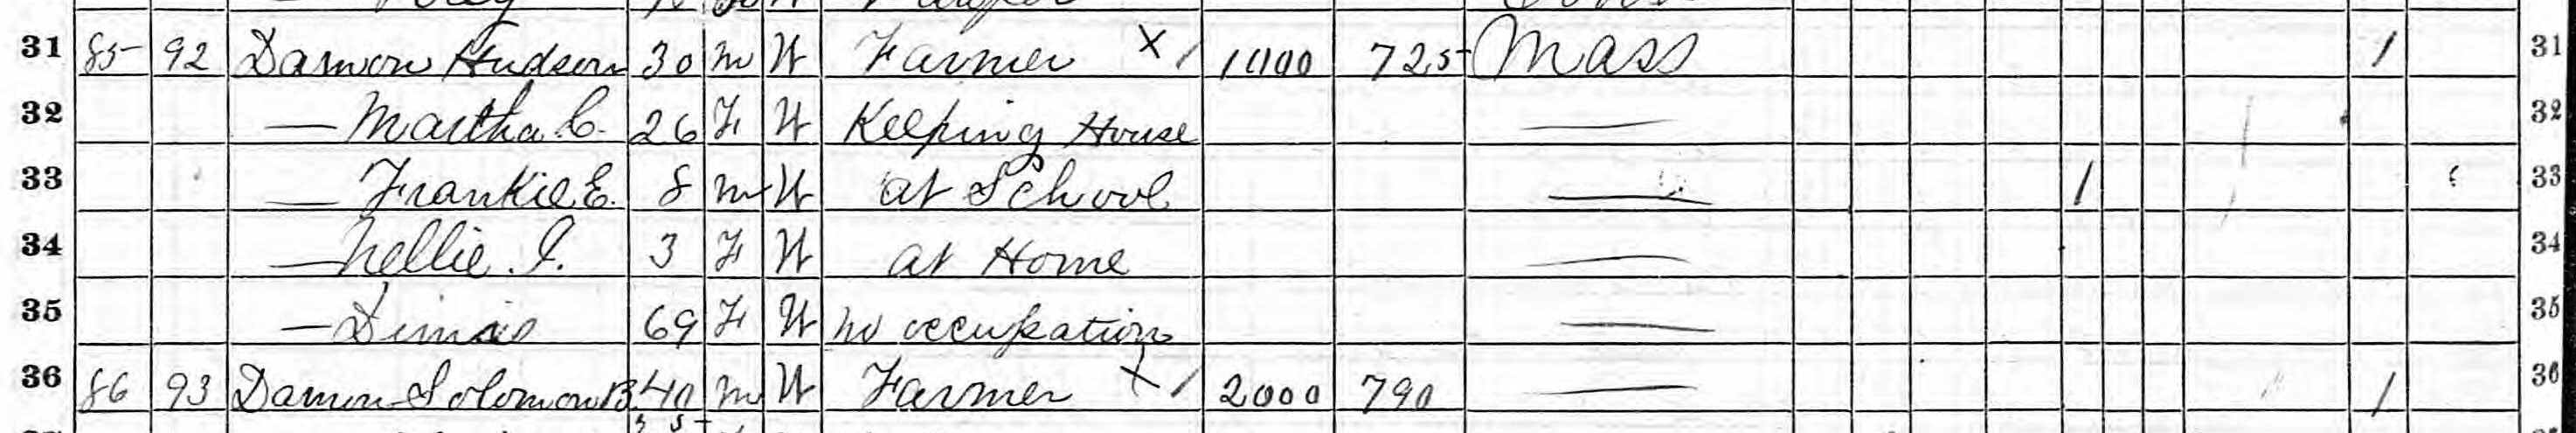 31 85 92 Damon Hudson 30 M W Farmer X / 1000 725 Mass / 31
32 — Martha C. 26 F W Keeping House — 32
33 — Frankie E. 8 M W at School — / 33
34 — Nellie I. 3 F W at Home — 34
35 — 69 F W no occupation — 35
36 86 93 Damon Solomon B 40 M W Farmer X / 2000 790 — / 36